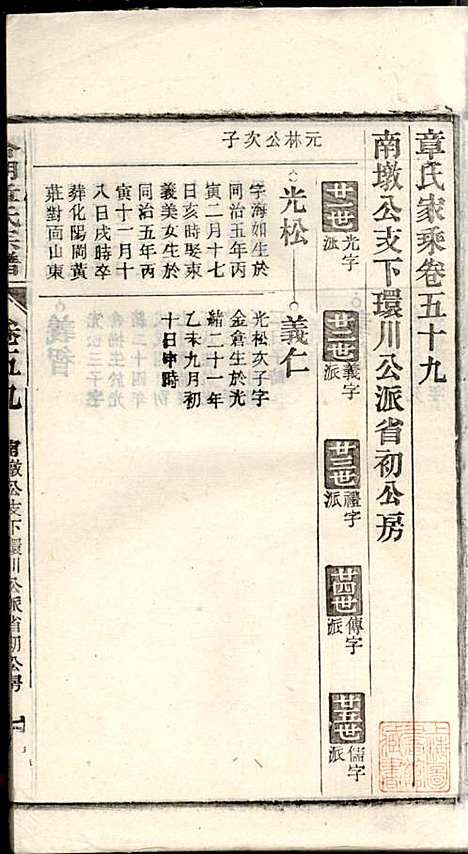 章氏家乘卷五十九
南墩公支下環川公派省初公房
廿一世光字派
廿二世義字派
廿三世禮字派
廿四世傳字派
廿五世儒字派
元林公次子
光松
字海如生於
同治五年丙
寅二月十七
日亥時娶東
義美女生於
同治五年丙
寅十一月十
八日戌時卒
葬化陽岡黃
莊對面山東
義仁
光松次子字
金倉生於光
緒二十一年
乙未九月初
十日申時
卷五九
南墩公支下環川公派省初公房
一